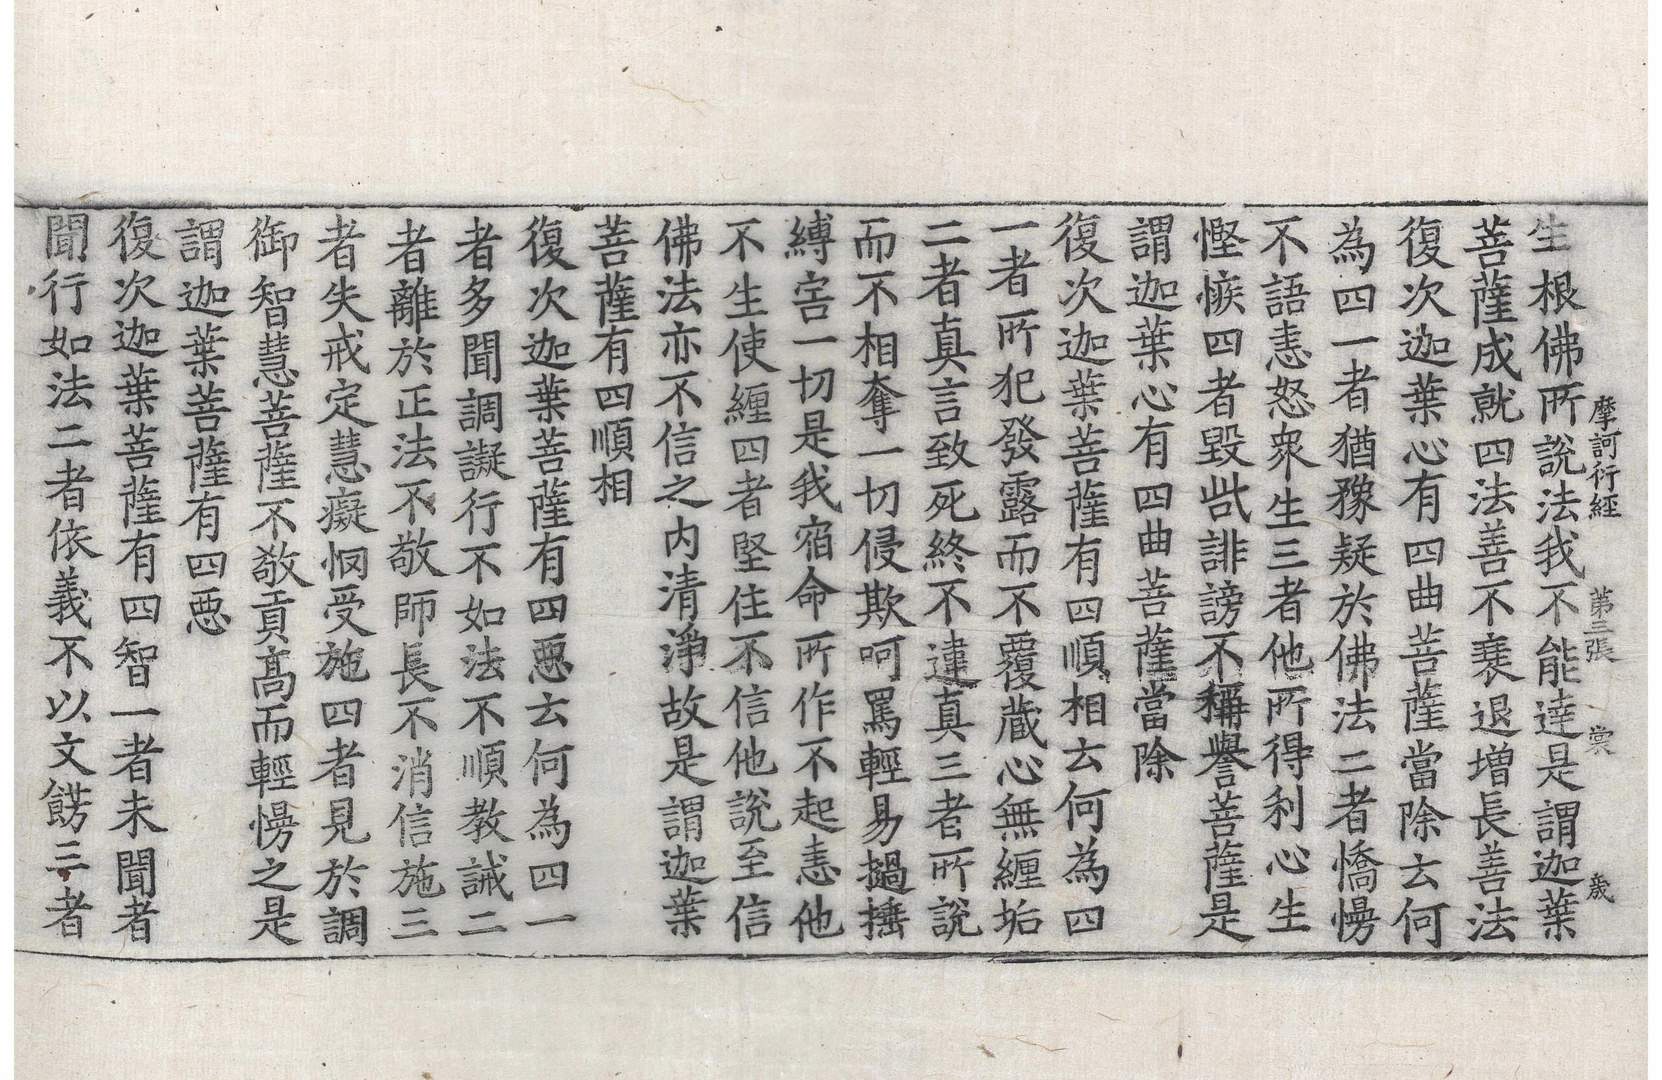 摩訶衍經 第三張 裳 歲
生根佛所說法我不能達是謂迦葉
菩薩成就四法善不衰退增長善法
復次迦葉心有四曲菩薩當除云何
為四一者猶豫疑於佛法二者憍慢
不語恚怒衆生三者他所得利心生
慳悋四者毀呰誹謗不稱譽菩薩是
謂迦葉心有四曲菩薩當除
復次迦葉菩薩有四順相云何為四
一者所犯發露而不覆藏心無纏垢
二者真言致死終不違真三者所說
而不相奪一切侵欺呵罵輕易撾捶
縛害一切是我宿命所作不起恚他
不生使纏四者堅住不信他說至信
佛法亦不信之內清淨故是謂迦葉
菩薩有四順相
復次迦葉菩薩有四惡云何為四一
者多聞調譺行不如法不順教誡二
者離於正法不敬師長不消信施三
者失戒定慧癡恫受施四者見於調
御智慧菩薩不敬貢高而輕慢之是
謂迦葉菩薩有四惡
復次迦葉菩薩有四智一者未聞者
聞行如法二者依義不以文餝三者